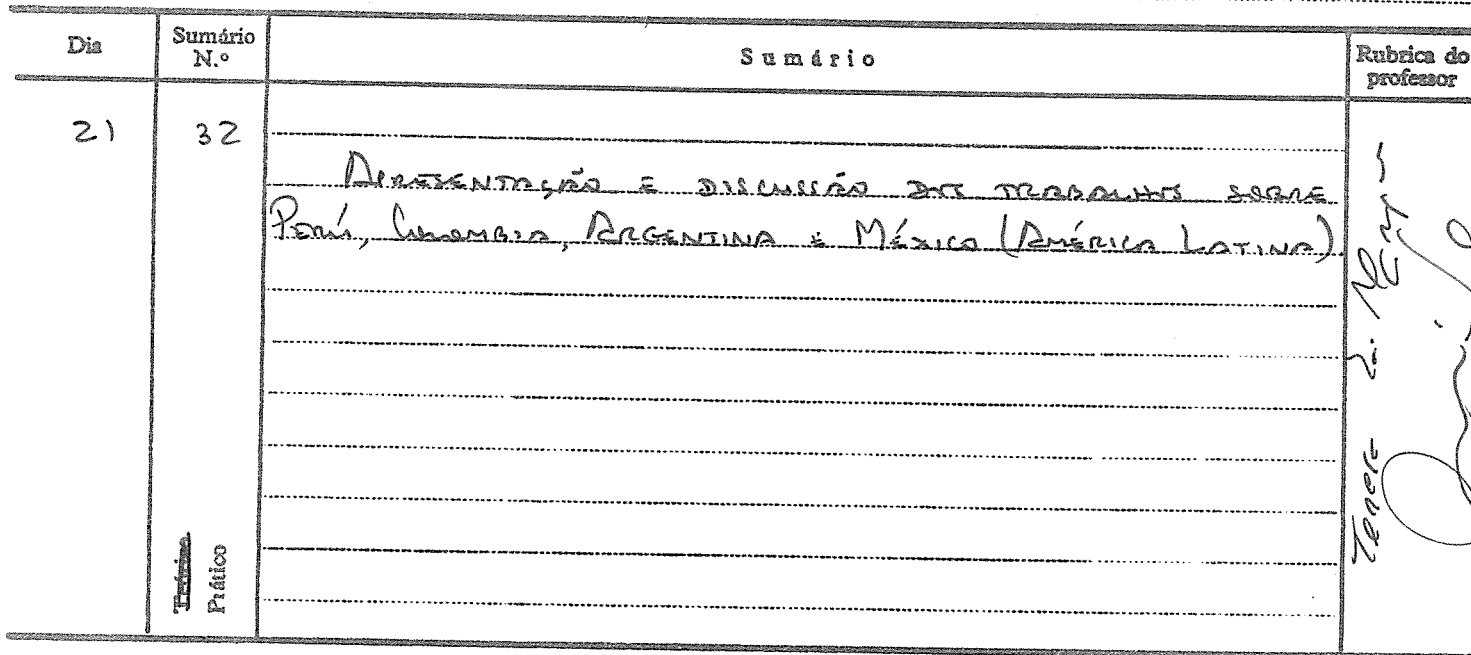 Dia
Sumário N.º
Sumário
Rubrica do professor
21
32
APRESENTAÇÃO E DISCUSSÃO DOS TRABALHOS SOBRE
PERÚ, COLOMBIA, ARGENTINA E MÉXICO (AMÉRICA LATINA)
Teórico
Prático